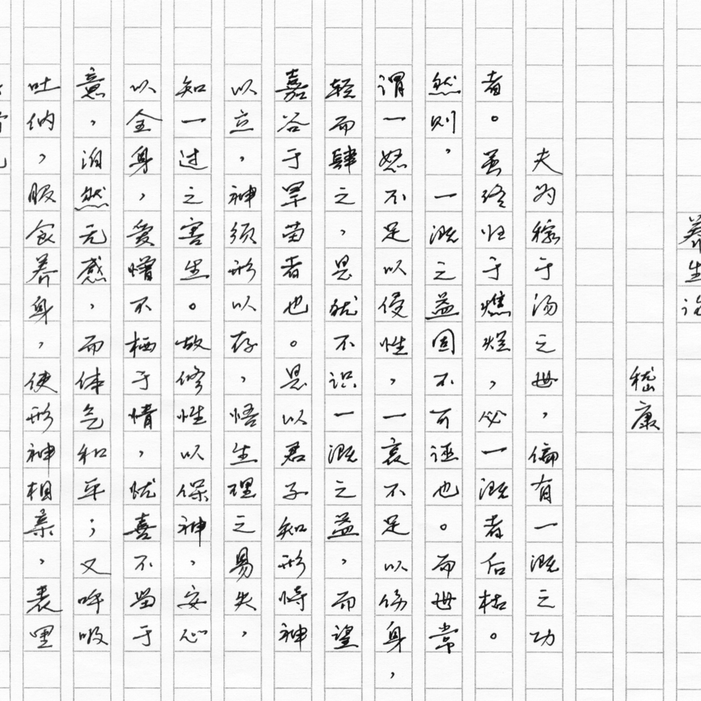 养生论
嵇康
夫为稼于汤之世，偏有一溉之功
者。虽终归于燋烂，必一溉者后枯。
然则，一溉之益固不可诬也。而世常
谓一怒不足以侵性，一哀不足以伤身，
轻而肆之，是犹不识一溉之益，而望
嘉谷于旱苗者也。是以君子知形恃神
以立，神须形以存，悟生理之易失，
知一过之害生。故修性以保神，安心
以全身，爱憎不栖于情，忧喜不留于
意，泊然无感，而体气和平；又呼吸
吐纳，服食养身，使形神相亲，表里